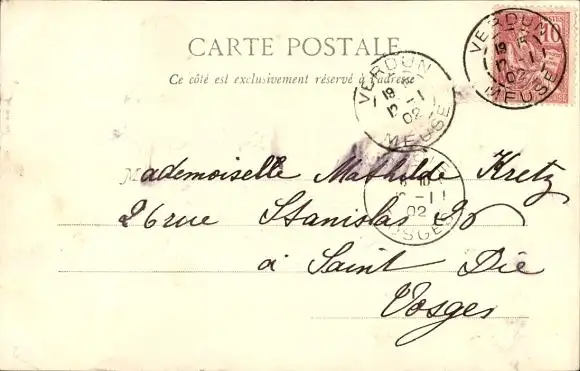 CARTE POSTALE
Ce côté est exclusivement réservé à l'adresse
POSTES
10
VERDUN
19
02
MEUSE
VERDUN
19
12 - 1
02
MEUSE
10
02
VOSGES
Mademoiselle Mathilde Kretz
26 rue Stanislas
à Saint Die
Vosges